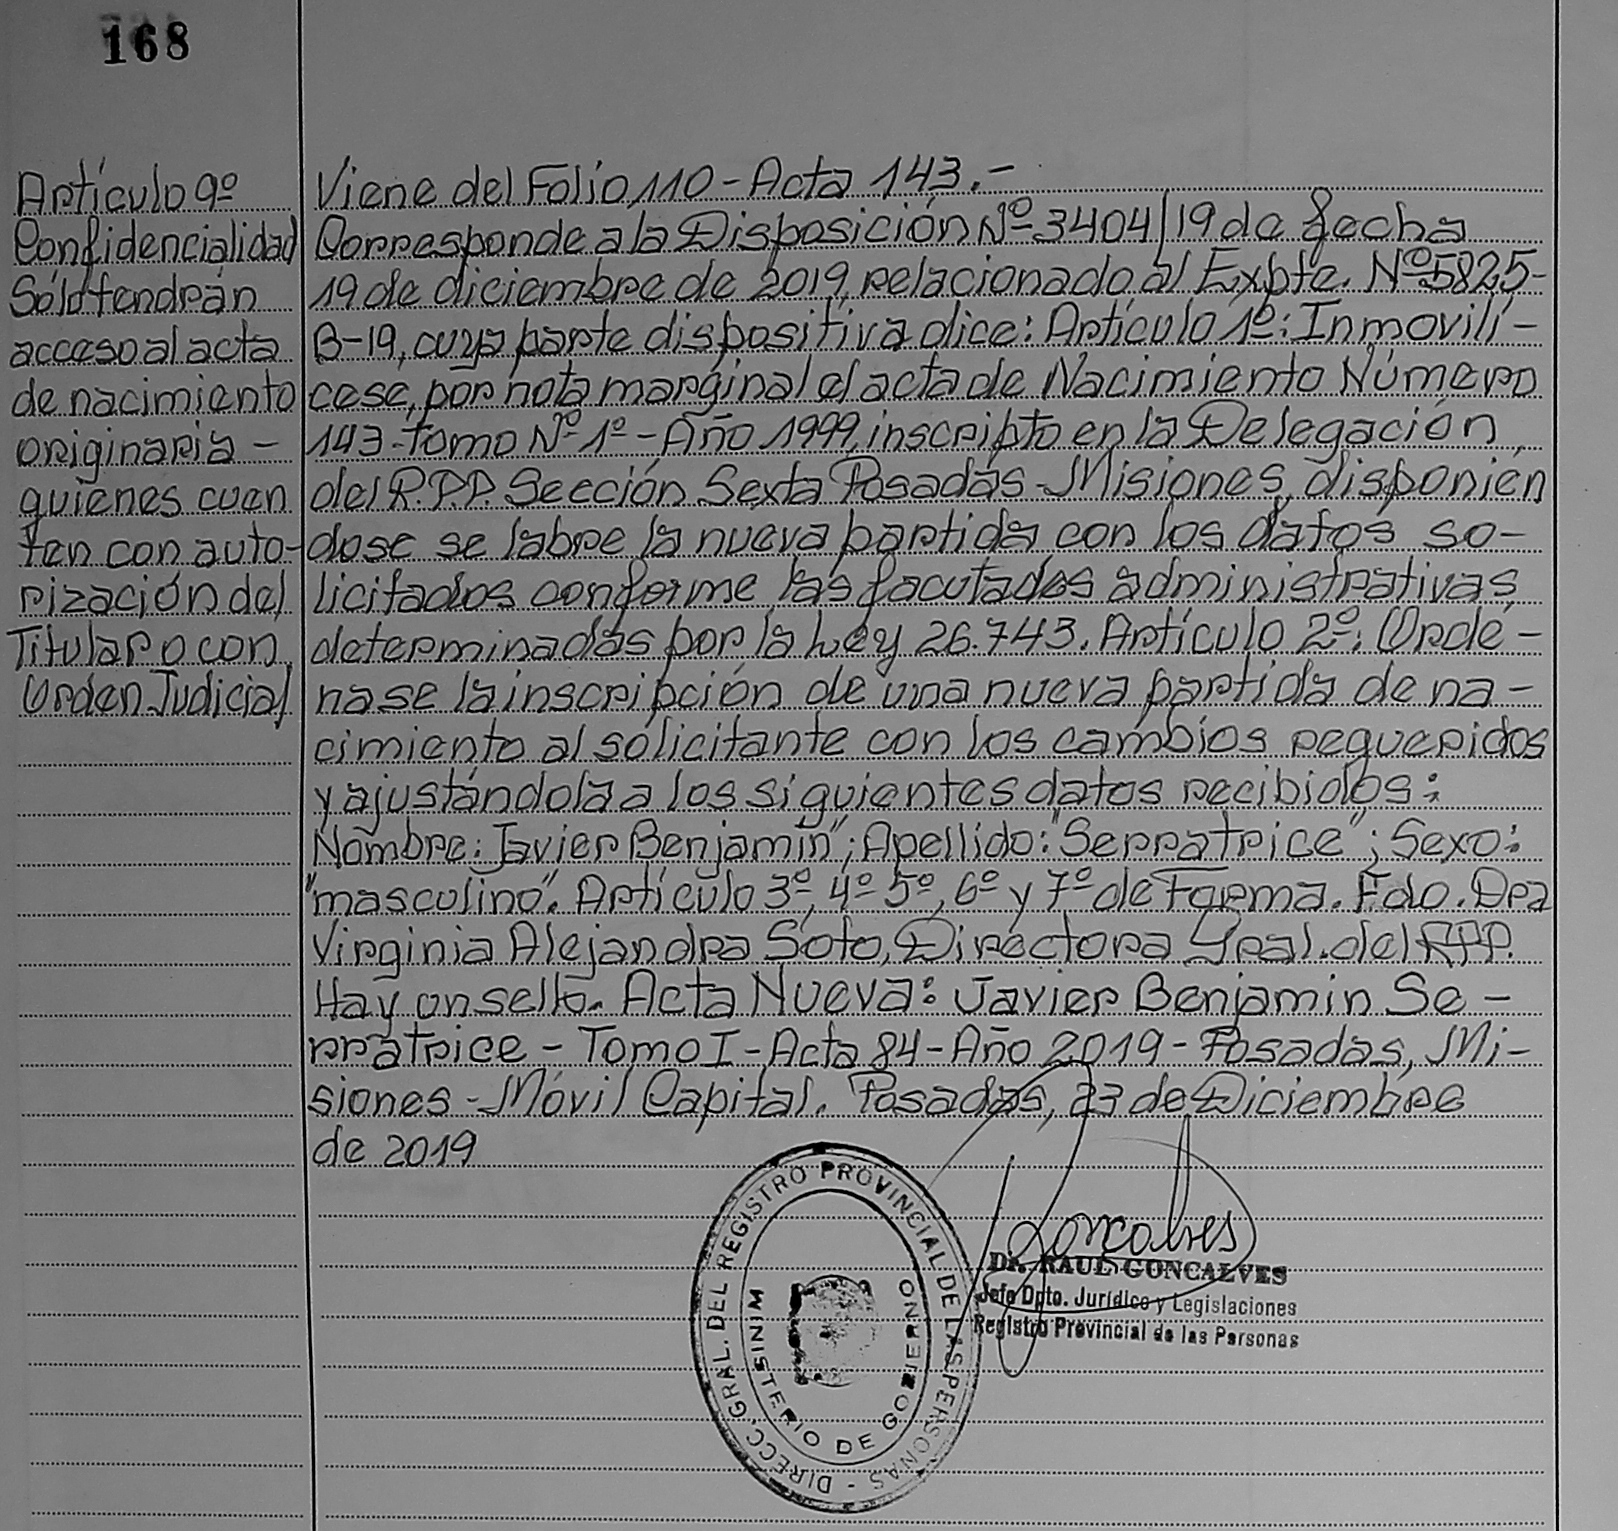 168
Artículo 9º
Confidencialidad
Sólo tendrán
acceso al acta
de nacimiento
originaria -
quienes cuen
ten con auto-
rización del
Titular o con
Orden Judicial
Viene del Folio 110 - Acta 143.-
Corresponde a la Disposición Nº 3404/19 de fecha
19 de diciembre de 2019, relacionado al Expte. Nº 5825-
B-19, cuya parte dispositiva dice: Artículo 1º: Inmovilí-
cese, por nota marginal el acta de Nacimiento Número
143 - Tomo Nº 1º - Año 1999, inscripto en la Delegación
del R.P.P. Sección Sexta Posadas - Misiones, disponién
dose se labre la nueva partida con los datos so-
licitados conforme las facutades administrativas
determinadas por la Ley 26.743. Artículo 2º: Ordé-
nase la inscripción de una nueva partida de na-
cimiento al solicitante con los cambios requeridos
y ajustándola a los siguientes datos recibidos:
Nombre: Javier Benjamín"; Apellido: "Serratrice"; Sexo:
"masculino". Artículo 3º, 4º 5º, 6º y 7º de Forma. Fdo. Dra
Virginia Alejandra Soto, Directora Gral. del RPP.
Hay un sello. Acta Nueva: Javier Benjamín Se-
rratrice - Tomo I - Acta 84 - Año 2019 - Posadas, Mi-
siones - Móvil Capital. Posadas, 23 de Diciembre
de 2019
DIRECC. GRAL. DEL REGISTRO PROVINCIAL DE LAS PERSONAS -
MINISTERIO DE GOBIERNO
Goncalves
Dr. RAUL GONCALVES
Jefe Dpto. Jurídico y Legislaciones
Registro Provincial de las Personas